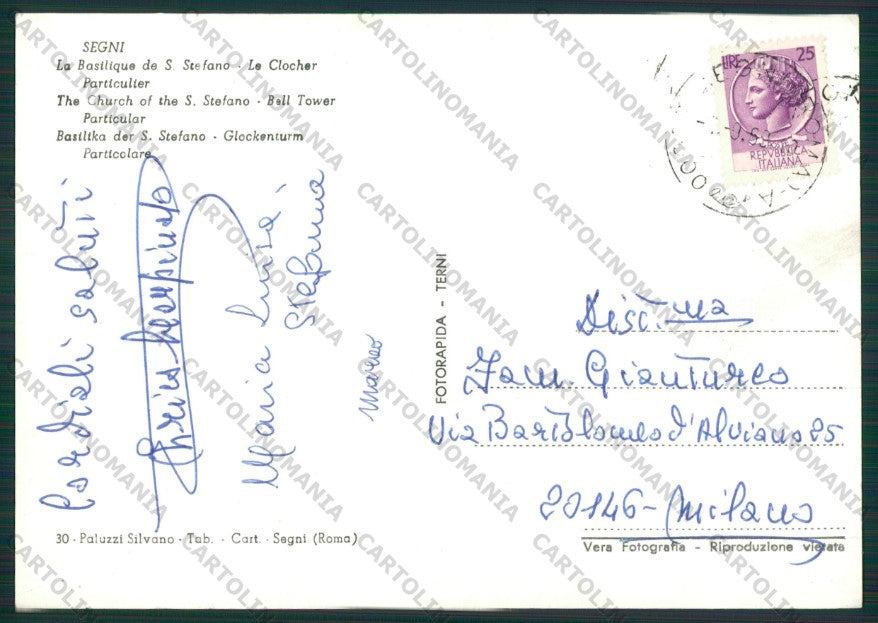 SEGNI
La Basilique de S. Stefano - Le Clocher
Particulier
The Church of the S. Stefano - Bell Tower
Particular
Basilika der S. Stefano - Glockenturm
Particolare
Cordiali saluti
Maria Luisa
Stefania
Marco
30 - Paluzzi Silvano - Tab. - Cart. - Segni (Roma)
FOTORAPIDA - TERNI
LIRE 25
REPVBBLICA
ITALIANA
Dist.ma
Fam. Gianturco
Via Bartolomeo d'Alviano 25
20146 - Milano
Vera Fotografia - Riproduzione vietata
CARTOLINOMANIA